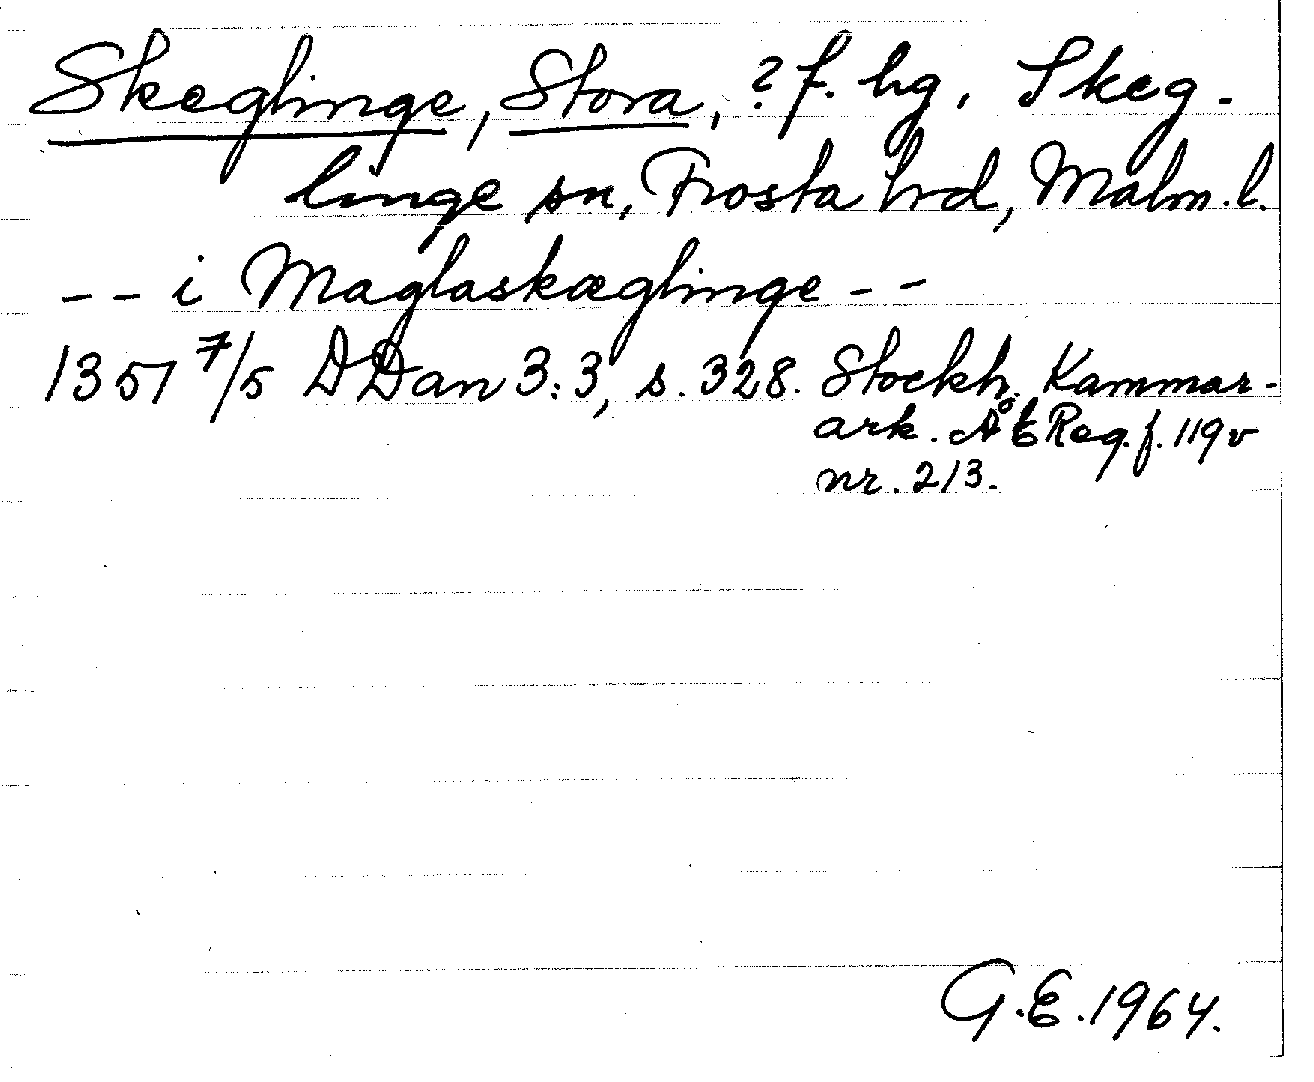 Skeglinge, Stora, ? f. hg, Skeg-
linge sn, Frosta hrd, Malm. l.
-- i Maglaskæglinge --
1357 7/5 DDan 3:3, s. 328. Stockh. Kammar-
ark. ÅE Reg. f. 119v
nr. 213.
G.E. 1964.